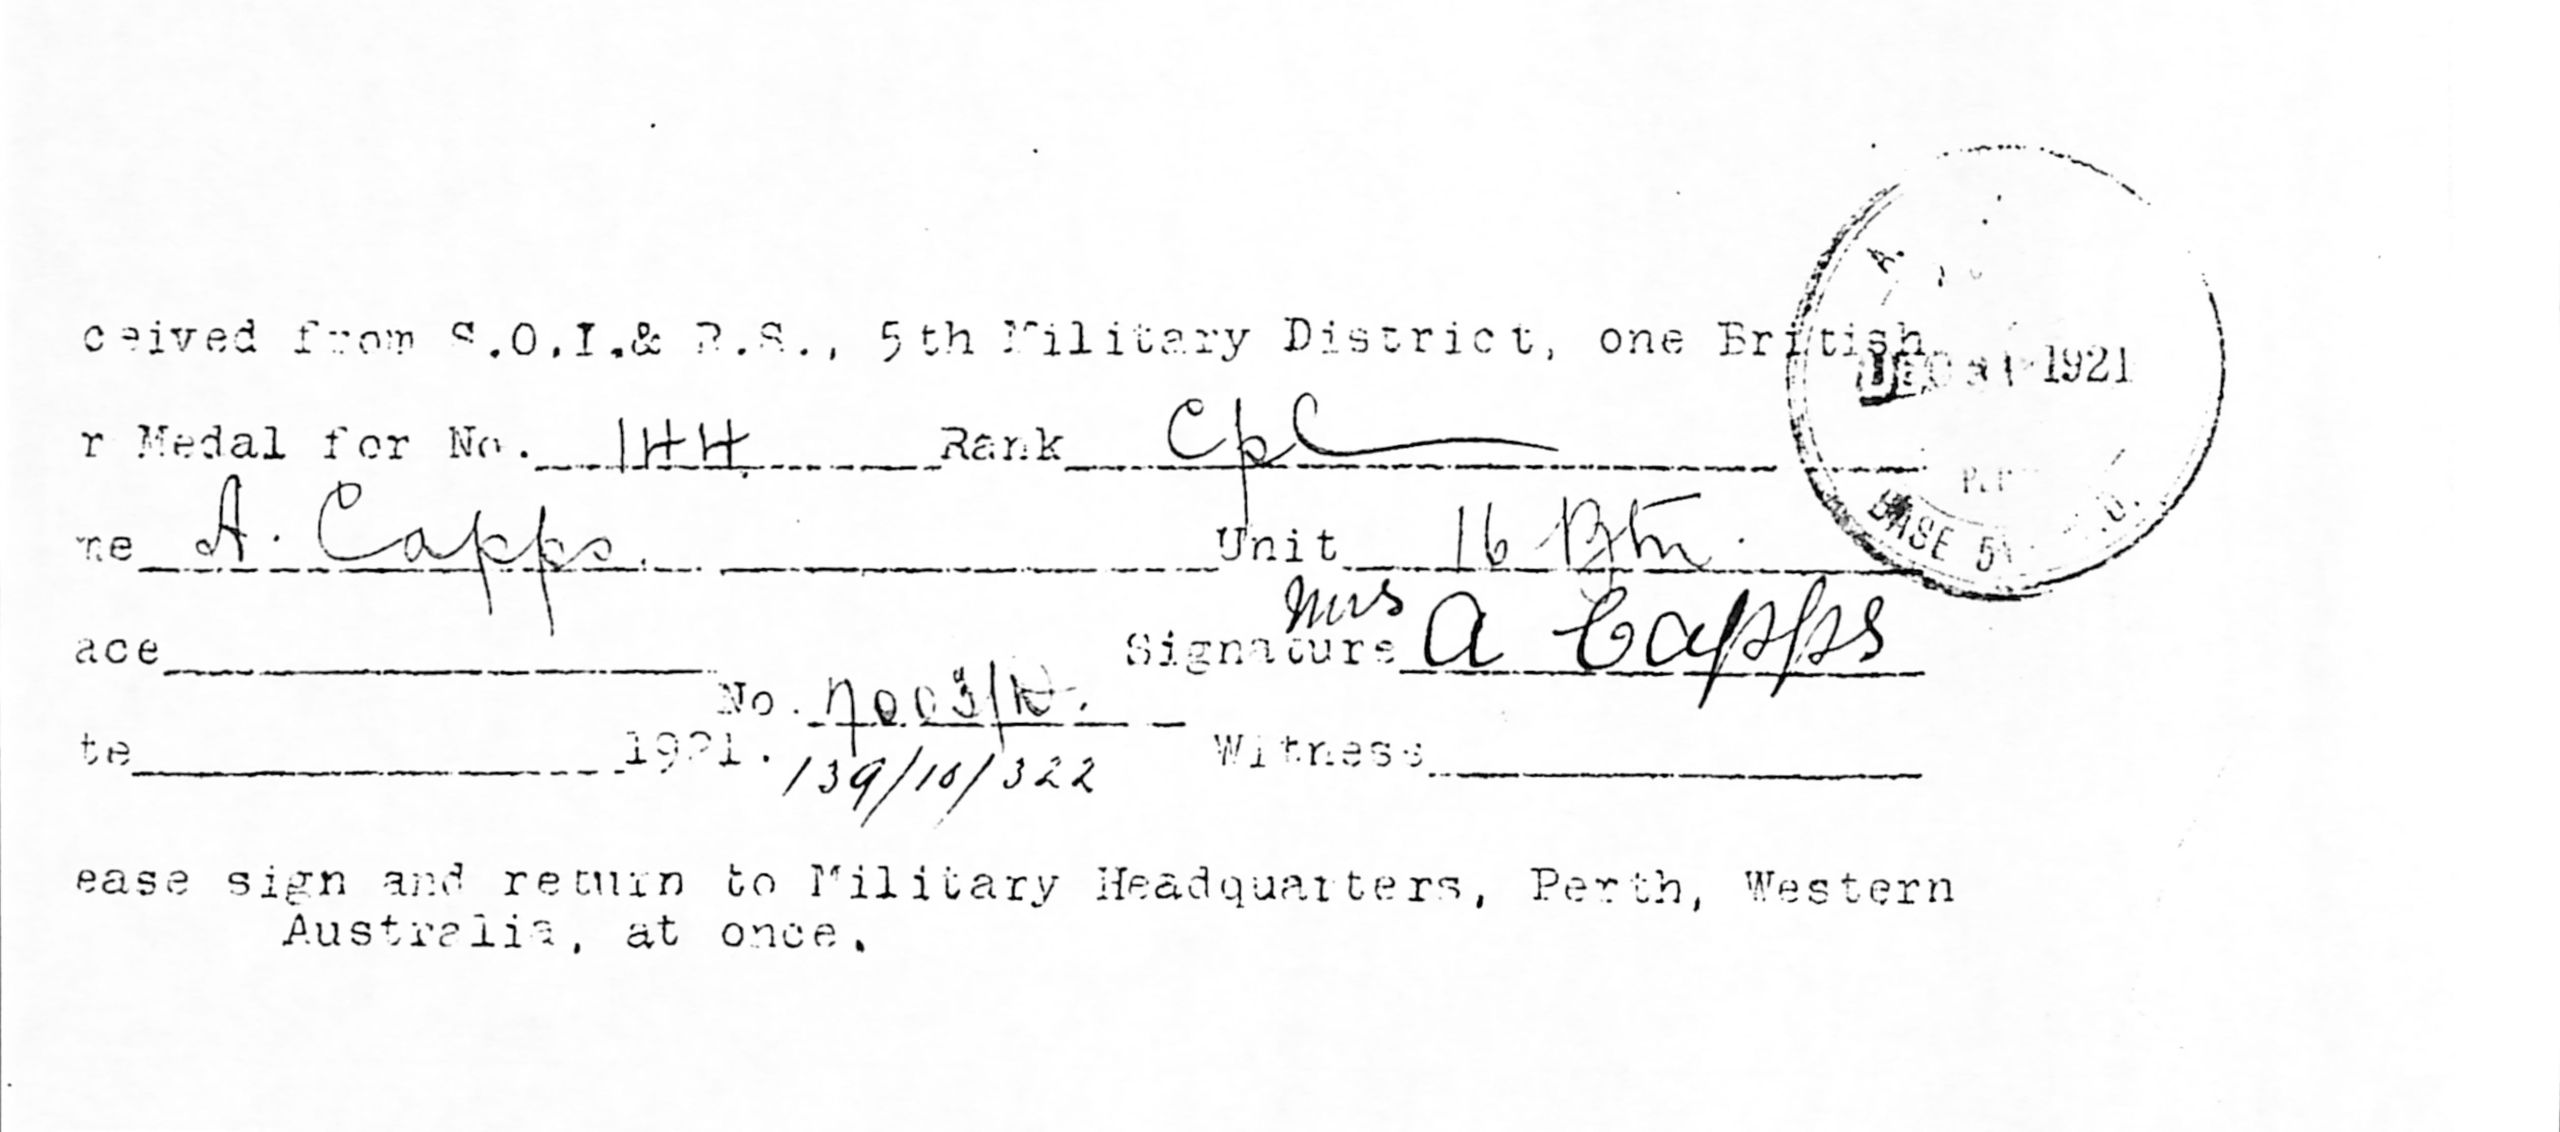 ceived from S.O.I.& R.S., 5th Military District, one British
r Medal for No. 144 Rank Cpl
me A. Capps. Unit 16 Btn.
ace Signature Mrs A Capps
No. 7003/
te 1921. 139/10/322 Witness
ease sign and return to Military Headquarters, Perth, Western
Australia, at once.
DEC 1921
BASE